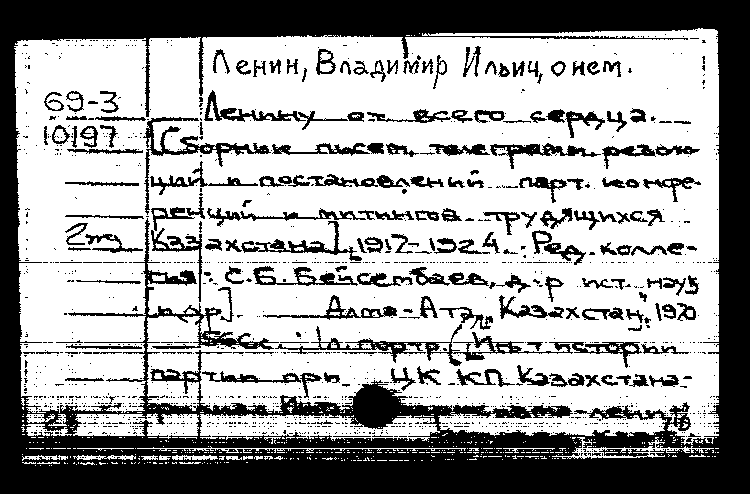 Ленин, Владимир Ильич, о нем.
69-3
10197
Ленину от всего сердца.
[Сборник писем, телеграмм, резолю-
ций и постановлений парт. конфе-
ренций и митингов трудящихся
Казахстана], 1917-1924. Ред. колле-
гия: С.Б. Бейсембаев, д-р ист. наук
[и др]. Алма-Ата, "Казахстан", 1970
366с.; 1л. портр. (Ин-т истории
партии при ЦК КП Казахстана-
филиал Ин-та